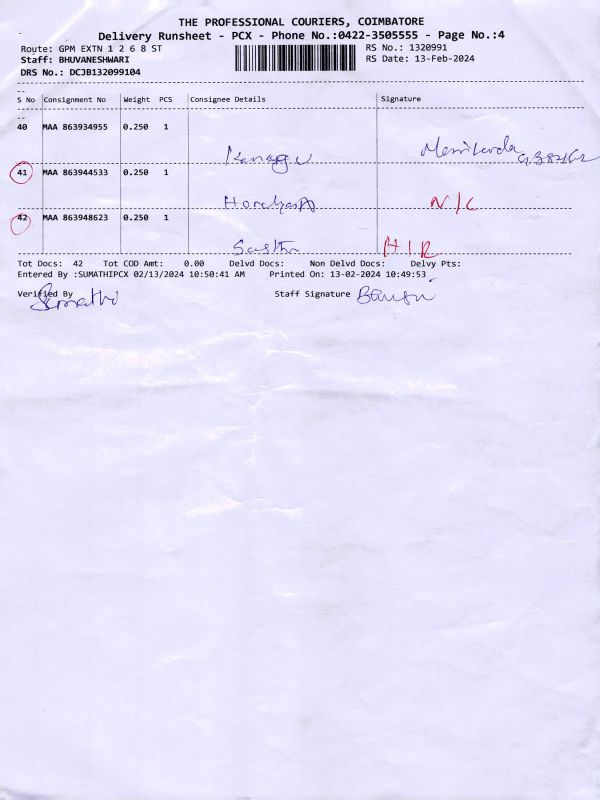 THE PROFESSIONAL COURIERS, COIMBATORE
Delivery Runsheet - PCX - Phone No.:0422-3505555 - Page No.:4
Route: GPM EXTN 1 2 6 8 ST RS No.: 1320991
Staff: BHUVANESHWARI RS Date: 13-Feb-2024
DRS No.: DCJB132099104
S No Consignment No Weight PCS Consignee Details Signature
40 MAA 863934955 0.250 1
Kanagu
41 MAA 863944533 0.250 1
N/C
42 MAA 863948623 0.250 1
H/R
Tot Docs: 42 Tot COD Amt: 0.00 Delvd Docs: Non Delvd Docs: Delvy Pts:
Entered By :SUMATHIPCX 02/13/2024 10:50:41 AM Printed On: 13-02-2024 10:49:53
Verified By Staff Signature
Sumathi